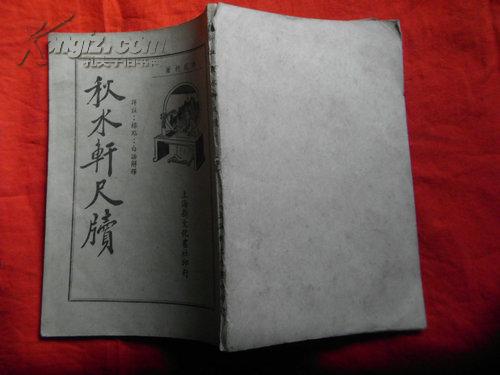 Kongfz.com
孔夫子旧书网
秋水軒尺牘
詳註・標點・白話解釋
上海新文化書社印行